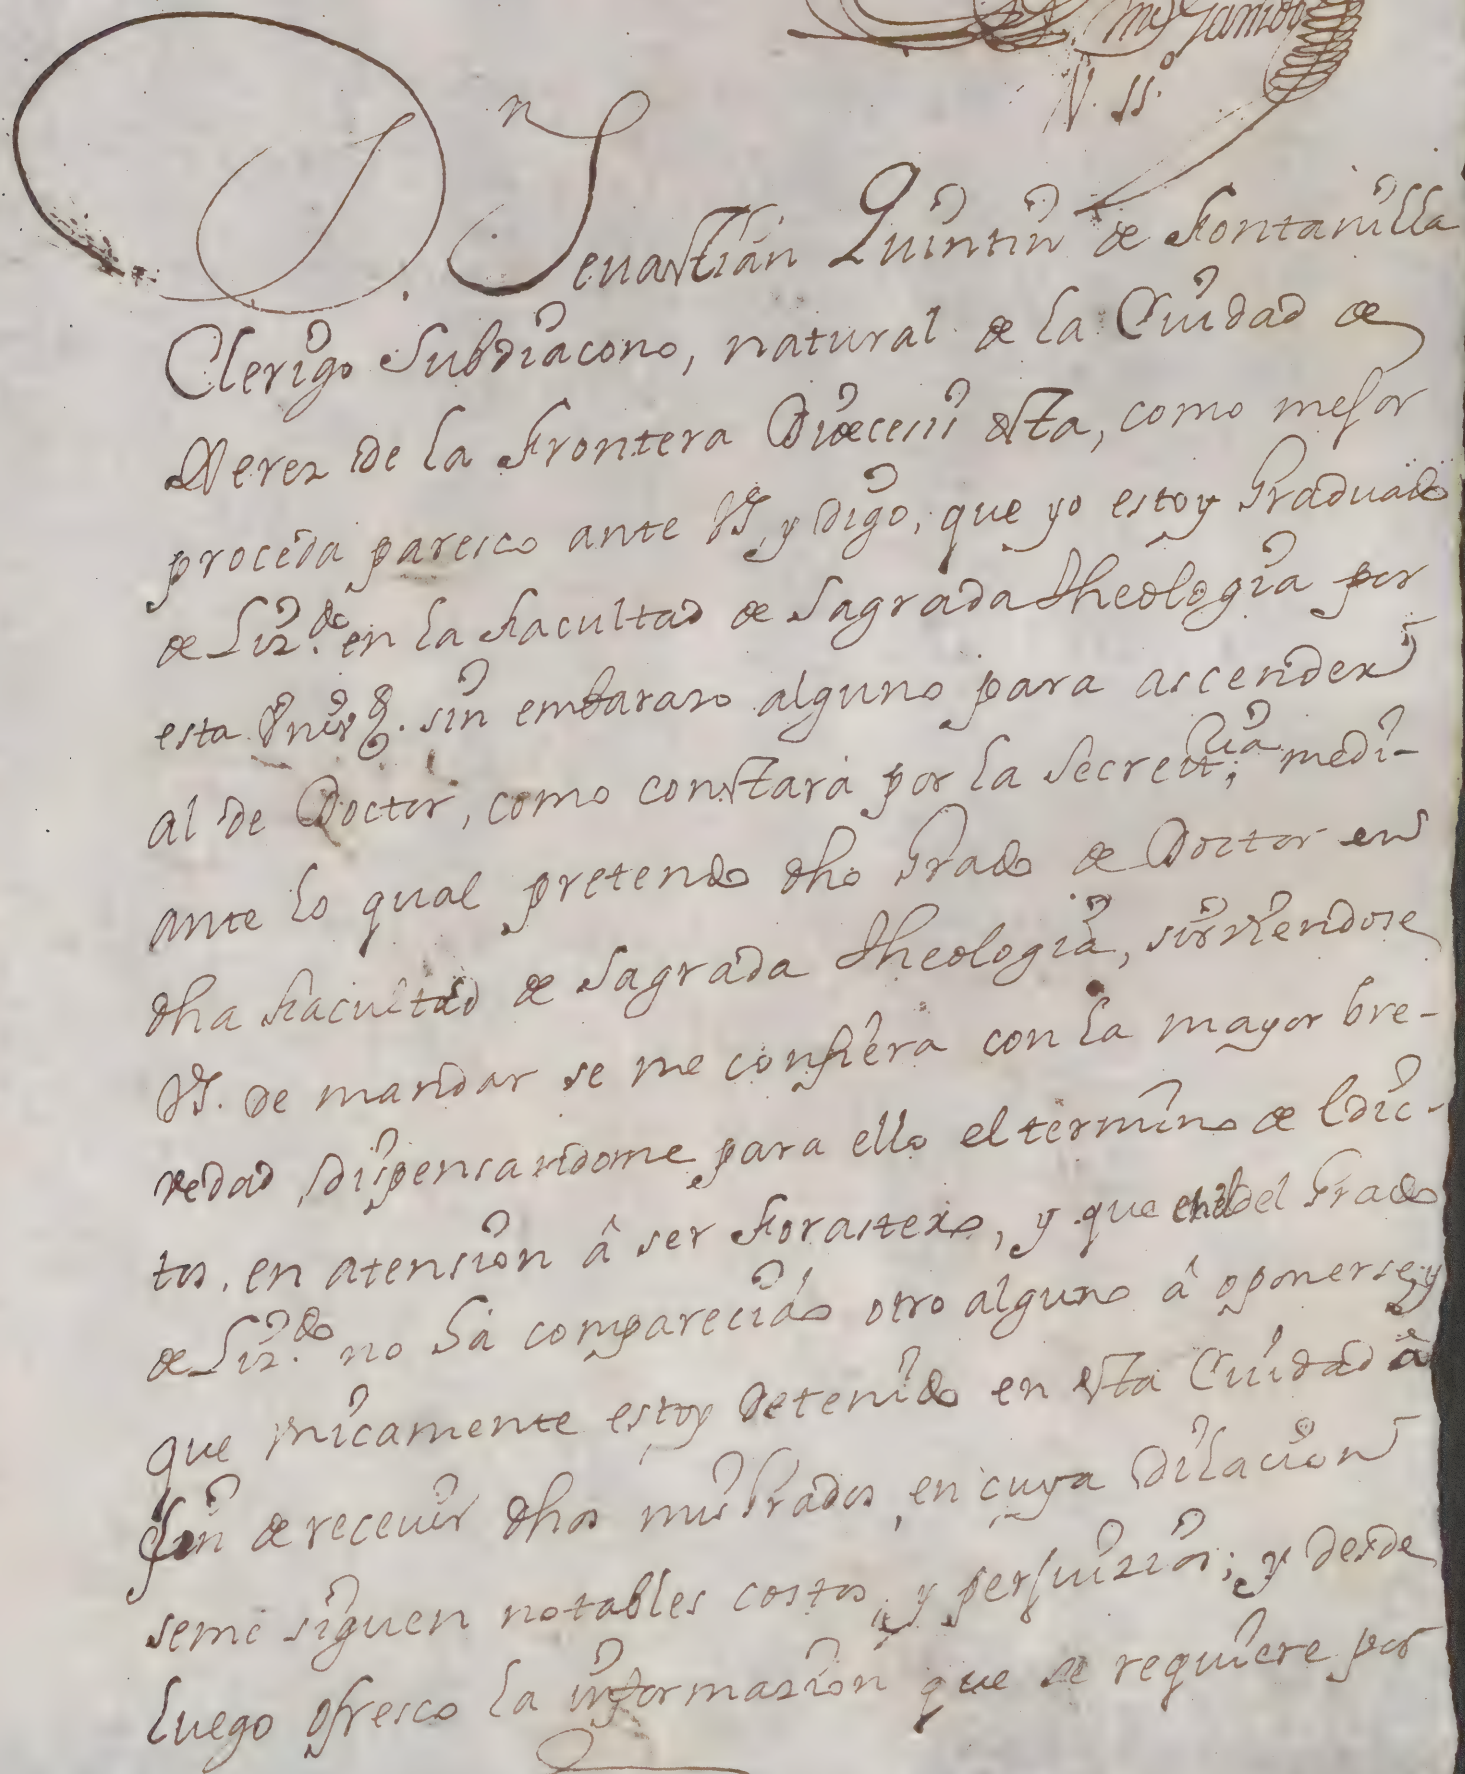 N. 11.º
Dn. Sevastian Quintin de Fontanilla
Clerigo Subdiacono, natural de la Ciudad de
Xerez de la Frontera Dioecesis dsta, como mejor
proceda paresco ante VS. y digo, que yo estoy Graduado
de Liz.do en la Facultad de Sagrada Theologia por
esta Vniv.d sin embarazo alguno para ascender
al de Doctor, como constarà por la Secret.ria; medi-
ante lo qual pretendo dho Grado de Doctor en
dha Facultad de Sagrada Theologia, sirviendose
VS. de mandar se me confiera con la mayor bre-
vedad, dispensandome para ello el termino de Edic-
tos, en atension â ser Forastero, y que en el del Grado
de Liz.do no hà comparecido otro alguno â oponerse, y
que vnicamente estoy detenido en esta Ciudad â
fin de recevir dhos mis Grados, en cuya dilacion
se me siguen notables costos, y perjuizios; y desde
luego ofresco la informazion que se requiere por